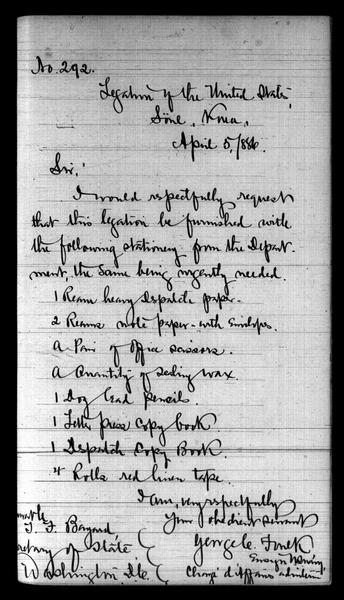 No. 292.
Legation of the United States,
Söul, Korea,
April 5, 1886.
Sir,
I would respectfully request
that this legation be furnished with
the following stationery from the Depart-
ment, the same being urgently needed.
1 Ream heavy dispatch paper.
2 Reams note paper - with Envelopes.
A Pair of office scissors.
A Quantity of sealing wax.
1 Doz lead pencils.
1 Letter press copy book
1 Dispatch Copy Book.
4 Rolls red linen tape.
I am, very respectfully
Your obedient servant
George C. Foulk
Ensign U.S. Navy,
Chargé d'Affaires ad interim
T. F. Bayard,
of State
Washington D.C.